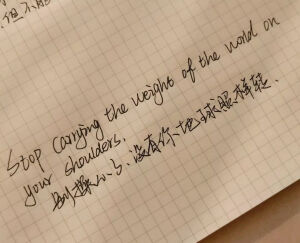 但不能
Stop carrying the weight of the world on
your shoulders.
别操心了、没有你地球照样转.